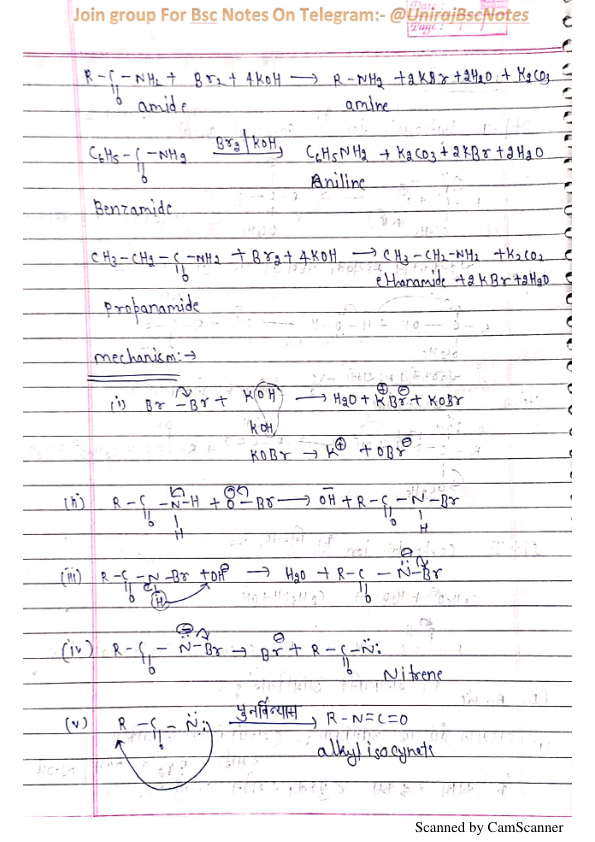 Join group For Bsc Notes On Telegram:- @UnirajBscNotes
Date :
Page :
R-C-NH₂ + Br₂ + 4KOH → R-NH₂ + 2KBr + 2H₂O + K₂CO₃
O
amide amine
C₆H₅-C-NH₂ Br₂/KOH → C₆H₅NH₂ + K₂CO₃ + 2KBr + 2H₂O
O Aniline
Benzamide
CH₃-CH₂-C-NH₂ + Br₂ + 4KOH → CH₃-CH₂-NH₂ + K₂CO₃
O ethanamide + 2KBr + 2H₂O
Propanamide
mechanism:→
(i) Br-Br + KOH → H₂O + K⊕Br⊖ + KOBr
KOH
KOBr → K⊕ + OBr⊖
(ii) R-C-N-H + O⊖-Br → OH⁻ + R-C-N-Br
O H O H
(iii) R-C-N-Br + OH⊖ → H₂O + R-C-N̈⊖-Br
O H O
(iv) R-C-N̈⊖-Br → Br⊖ + R-C-N̈:
O O
Nitrene
(v) R-C-N̈: पुनर्विन्यास → R-N=C=O
O alkyl isocynets
Scanned by CamScanner